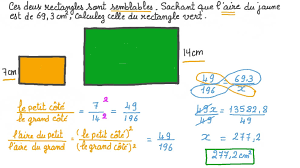 Ces deux rectangles sont semblables. Sachant que l'aire du jaune
est de 69,3 cm², calculez celle du rectangle vert.
7cm
14cm
le petit côté / le grand côté = 7² / 14² = 49 / 196
l'aire du petit / l'aire du grand = (le petit côté)² / (le grand côté)² = 49 / 196
49 / 196 = 69,3 / x
49x / 49 = 13582,8 / 49
x = 277,2
277,2 cm²